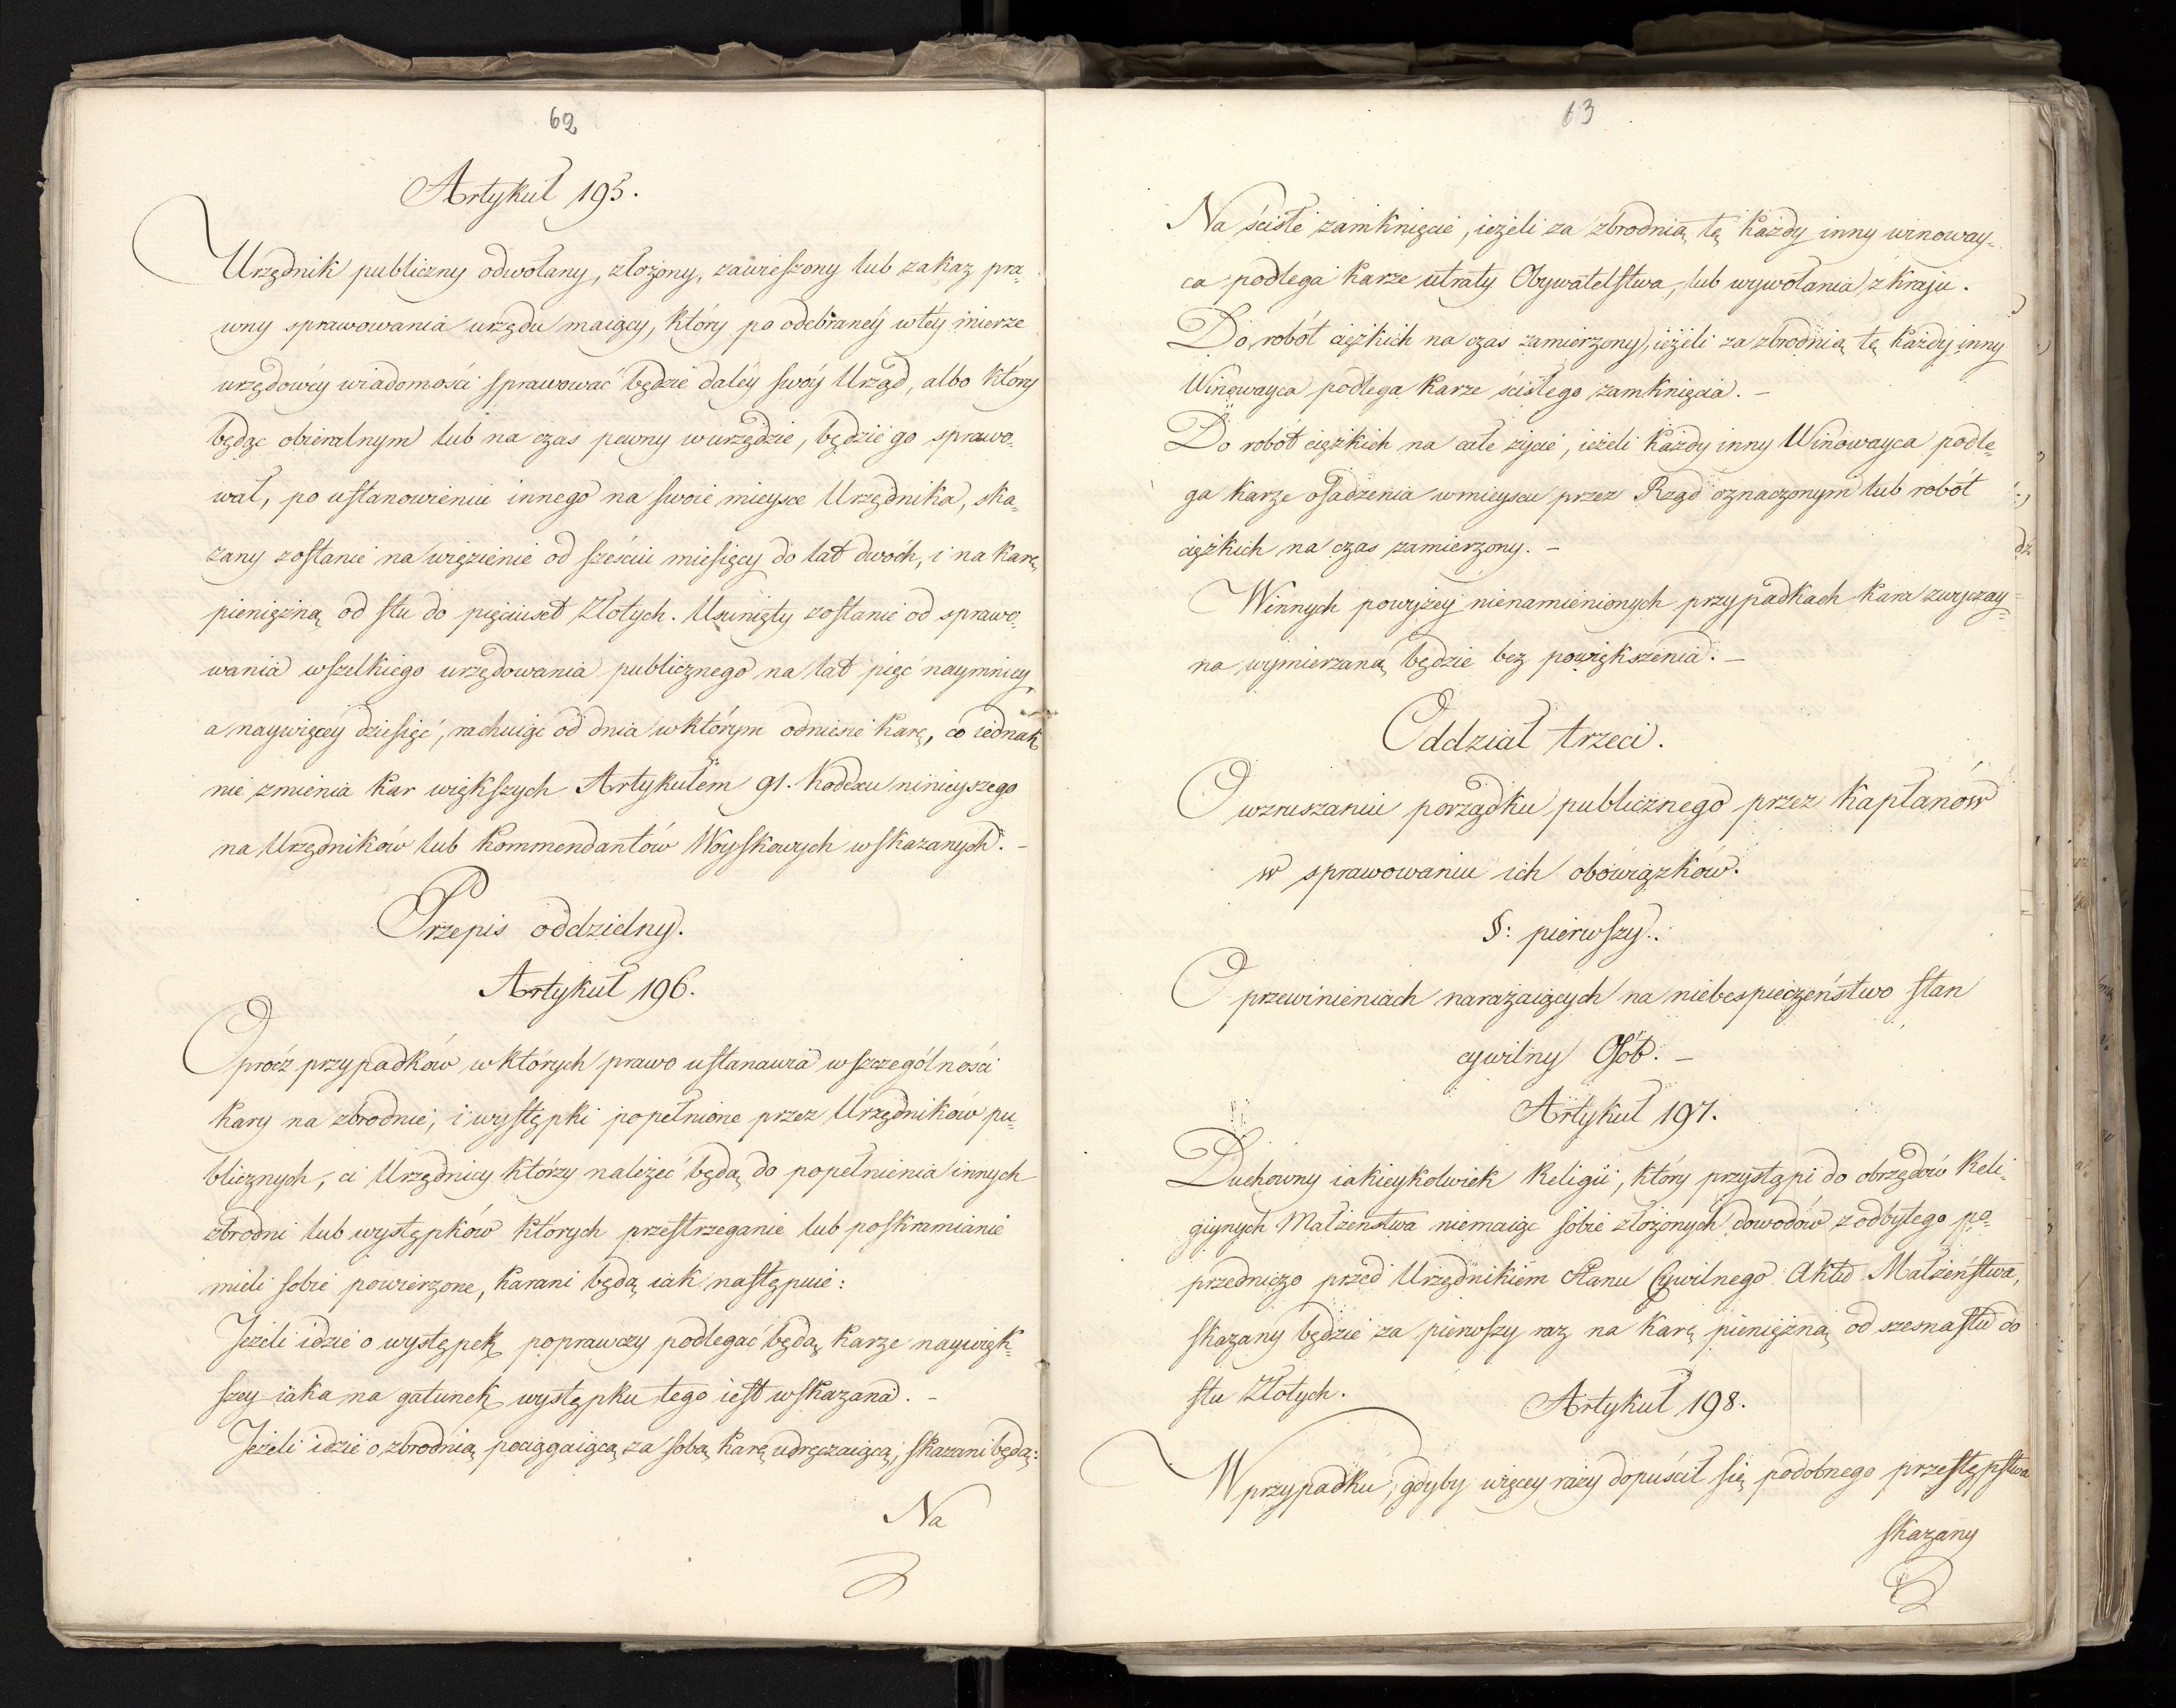 62
Artykuł 195.
Urzędnik publiczny odwołany, złożony, zawieszony lub zakaz pra-
wny sprawowania urzędu maiący, który po odebraney w tey mierze
urzędowey wiadomości sprawować będzie daley swóy Urząd, albo który
będąc obieralnym lub na czas pewny w urzędzie, będzie go sprawo-
wał, po ustanowieniu innego na swoie mieysce Urzędnika, ska-
zany zostanie na więzienie od sześciu miesięcy do lat dwóch, i na karę
pieniężną od stu do pięciuset Złotych. Usunięty zostanie od sprawo-
wania wszelkiego urzędowania publicznego na lat pięć naymniey
a naywięcey dziesięć, rachuiąc od dnia w którym odniesie karę, co iednak
nie zmienia kar większych Artykułem 91. Kodexu ninieyszego
na Urzędników lub Kommendantów Woyskowych wskazanych. –
Przepis oddzielny.
Artykuł 196.
Oprócz przypadków w których prawo ustanawia w szczególności
kary na zbrodnie, i występki popełnione przez Urzędników pu-
blicznych, ci Urzędnicy którzy należeć będą do popełnienia innych
zbrodni lub występków których przestrzeganie lub poskramianie
mieli sobie powierzone, karani będą iak następuie:
Jeżeli idzie o występek poprawczy podlegać będą karze naywięk-
szey iaka na gatunek występku tego iest wskazana. –
Jeżeli idzie o zbrodnią pociągaiącą za sobą karę udręczaiącą, skazani będą:
Na
63
Na ścisłe zamknięcie, ieżeli za zbrodnią tę każdy inny winoway-
ca podlega karze utraty Obywatelstwa, lub wywołania z kraju.
Do robót ciężkich na czas zamierzony, ieżeli za zbrodnią tę każdy inny
Winowayca podlega karze ścisłego zamknięcia. –
Do robót ciężkich na całe życie, ieżeli każdy inny Winowayca podle-
ga karze osadzenia w mieyscu przez Rząd oznaczonym lub robót
ciężkich na czas zamierzony. –
W innych powyżey nienamienionych przypadkach kara zwyczay-
na wymierzaną będzie bez powiększenia. –
Oddział trzeci.
O wzruszaniu porządku publicznego przez kapłanów
w sprawowaniu ich obowiązków.
§: pierwszy.
O przewinieniach narażaiących na niebespieczeństwo stan
cywilny Osób. –
Artykuł 197.
Duchowny iakieykolwiek Religii, który przystąpi do obrzędów Reli-
giynych Małżeństwa niemaiąc sobie złożonych dowodów z odbytego po-
przedniczo przed Urzędnikiem Stanu Cywilnego Aktu Małżeństwa,
skazany będzie za pierwszy raz na karę pieniężną od szesnastu do
stu Złotych.
Artykuł 198.
W przypadku, gdyby więcey razy dopuścił się podobnego przestępstwa
skazany